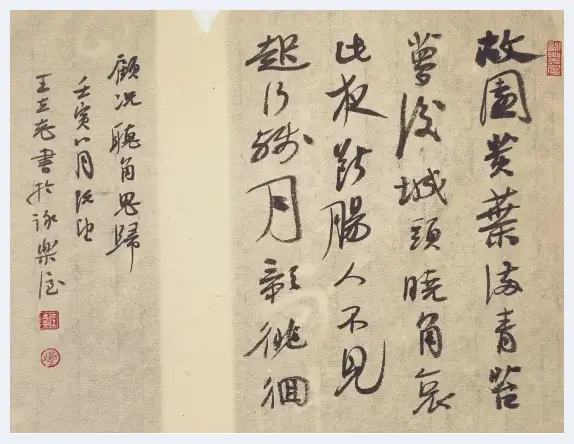 故園黄葉滿青苔
夢後城頭曉角哀
此夜斷腸人不見
起行殘月影徘徊
顧況聽角思歸
壬寅八月既望
王立志書於樂